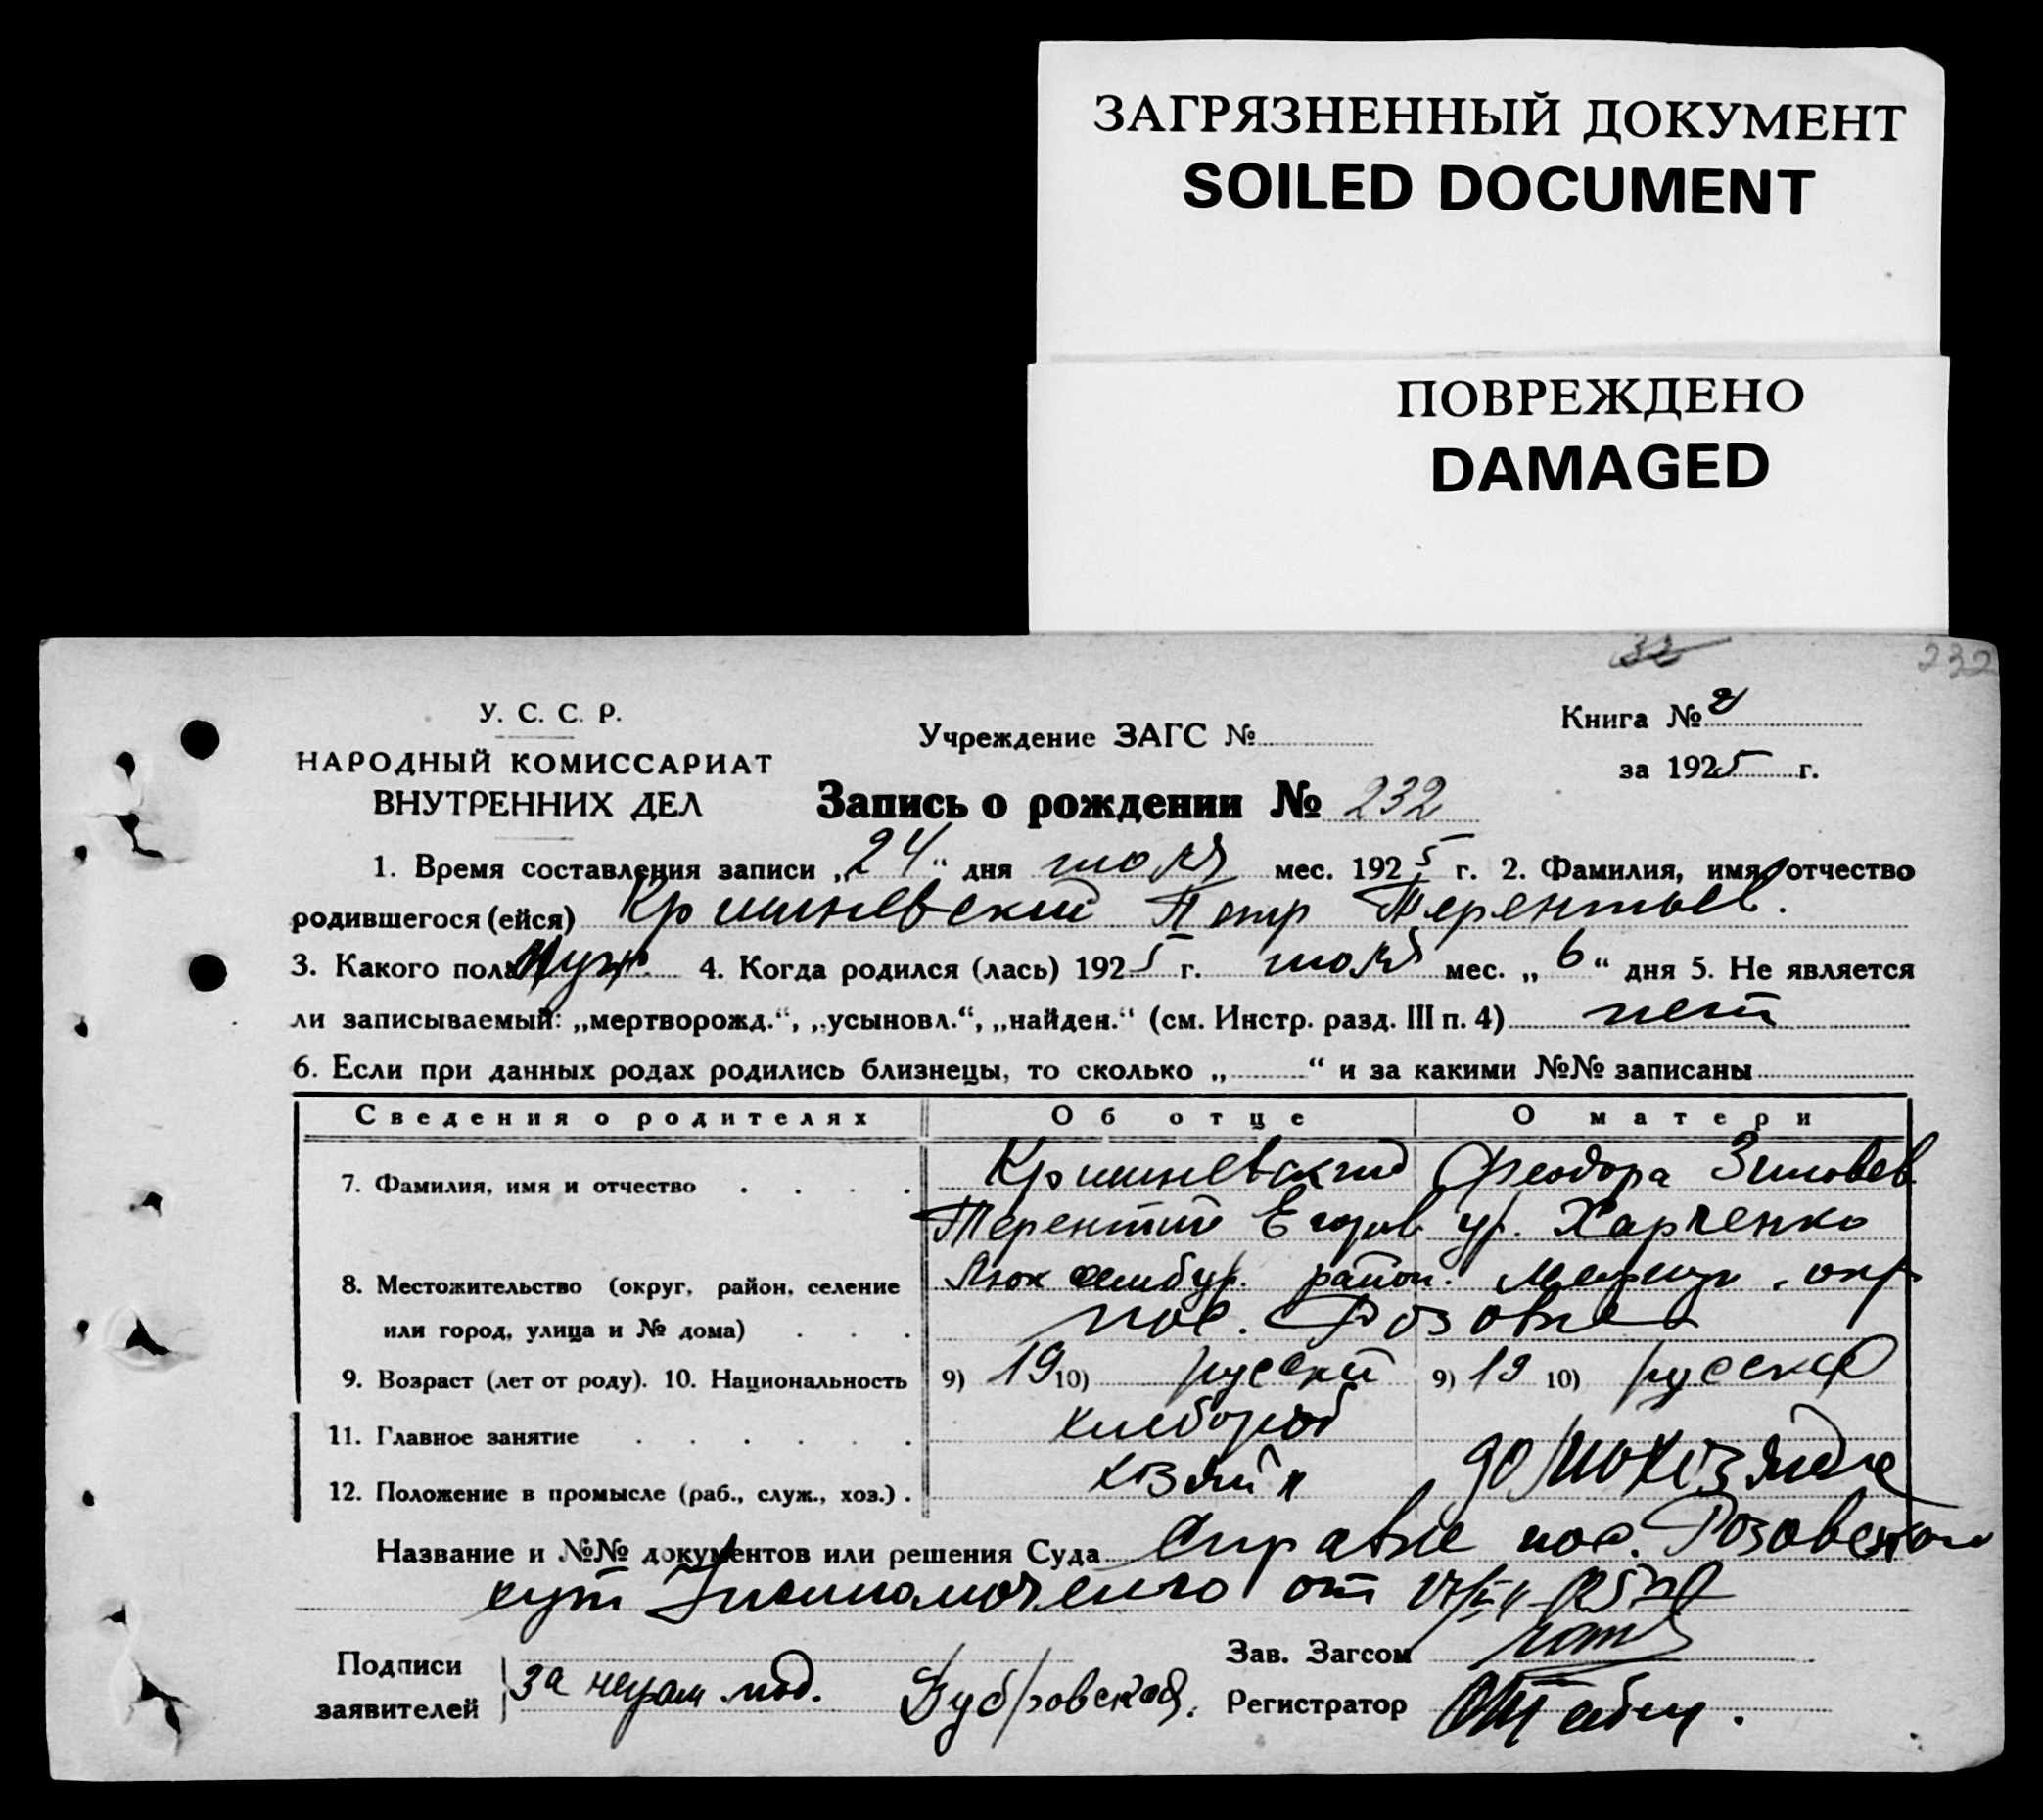 ЗАГРЯЗНЕННЫЙ ДОКУМЕНТ
SOILED DOCUMENT
ПОВРЕЖДЕНО
DAMAGED
32 232
У. С. С. Р.
НАРОДНЫЙ КОМИССАРИАТ
ВНУТРЕННИХ ДЕЛ
Учреждение ЗАГС №
Книга № 2
за 1925 г.
Запись о рождении № 232
1. Время составления записи „24“ дня июля мес. 1925 г. 2. Фамилия, имя, отчество
родившегося (ейся) Кришневский Петр Терентьев.
3. Какого пола муж. 4. Когда родился (лась) 1925 г. июля мес. „6“ дня 5. Не является
ли записываемый: „мертворожд.“, „усыновл.“, „найден.“ (см. Инстр. разд. III п. 4) нет
6. Если при данных родах родились близнецы, то сколько „ “ и за какими №№ записаны
Сведения о родителях Об отце О матери
7. Фамилия, имя и отчество Кришневский Феодора Зиновьев.
Терентий Егоров ур. Харченко
8. Местожительство (округ, район, селение Люксембур. район. Мариуп. окр
или город, улица и № дома) пос. Розовка
9. Возраст (лет от роду). 10. Национальность 9) 19 10) русский 9) 19 10) русская
11. Главное занятие хлебороб
12. Положение в промысле (раб., служ., хоз.) хозяин домохозяйка
Название и №№ документов или решения Суда Справка пос. Розовского
от
Подписи
заявителей
за неграм. под. Дубровская.
Зав. Загсом
Регистратор